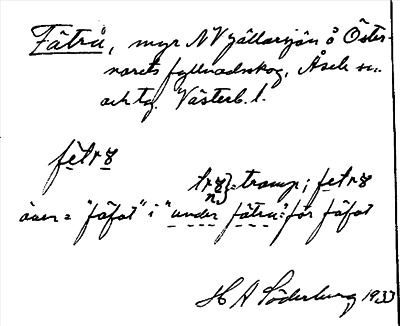 Fäträ, myr NV Jällarsjön å Öster-
norets fyllnadsskog, Åsele sn.
och tg. Västerb. l.
fetrꝫ
tramp; fetrꝫ
även = "fäfot" i "under fäträ": för fäfot
H A Söderberg 1933